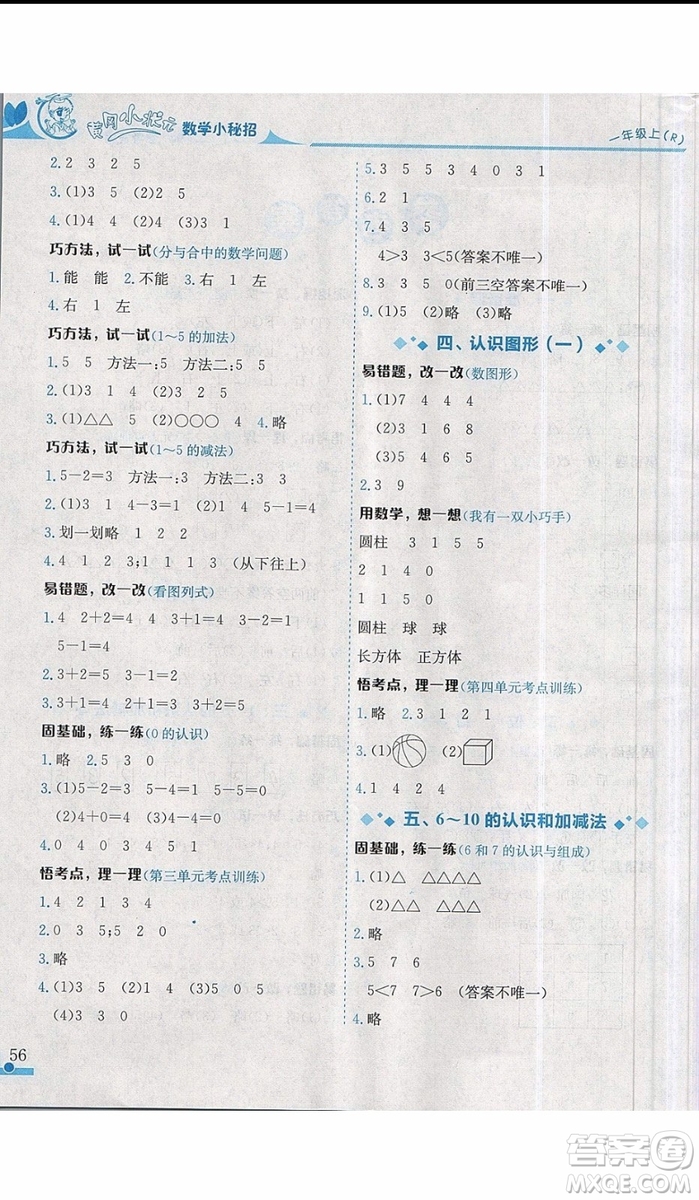 黄冈小状元 数学小秘招
一年级上(R)
2.2 3 2 5
3.(1)3 5 (2)2 5
4.(1)1 3 (2)4 5 (3)3 1
巧方法，试一试(分与合中的数学问题)
1.能 能 2.不能 3.右 1 左
4.右 1 左
巧方法，试一试(1～5的加法)
1.5 5 方法一:5 5 方法二:5 5
2.(1)3 1 4 (2)3 2 5
3.(1)△△ 5 (2)○○○ 5 4.略
巧方法，试一试(1～5的减法)
1.5-2=3 方法一:3 方法二:3 3
2.(1)3 1 4-3=1 (2)5 4 5-1=4
3.划一划略 1 2 2
4.4 1 2 3;1 1 3 (从下往上)
易错题，改一改(看图列式)
1.4 2+2=4 3+1=4 3-2=1
5-1=4
2.3+2=5 3-1=2
3.3+2=5 5-3=2
固基础，练一练(0的认识)
1.略 2.5 3 0
3.(1)5-0=5 5-4=1 5-5=0
(2)4+0=4 0+4=4
4.0 3 4 5
悟考点，理一理(第三单元考点训练)
1.4 2 1 3 4
2.0 3 5;5 2 0
3.略
4.(1)3 5 (2)1 4 (3)5 2 5
(4)3 3 0
56
5.3 5 5 3 4 5 3
6.2 1
7.4 3 5
4>3 3<5(答案不唯一)
8.3 3 3 5 0(前三空答案不唯一)
9.(1)5 (2)略 (3)略
四、认识图形（一）
易错题，改一改(数图形)
1.(1)7 4 4 4
(2)3 1 6 8
(3)5 4 6 5
2.3 9
用数学，想一想(我有一双小巧手)
圆柱 3 1 5 5
2 1 4 0
1 1 4 0
圆柱 球 球
长方体 正方体
悟考点，理一理(第四单元考点训练)
1.略 2.3 1 2 1
3.(1) (2)
4.1 4 2 4
五、6～10的认识和加减法
固基础，练一练(6和7的认识与组成)
1.(1)△ △△△△
(2)△△ △△△△△
2.略
3.5 7 6
5<7 7>6 (答案不唯一)
4.略
答案圈
MXQE.COM